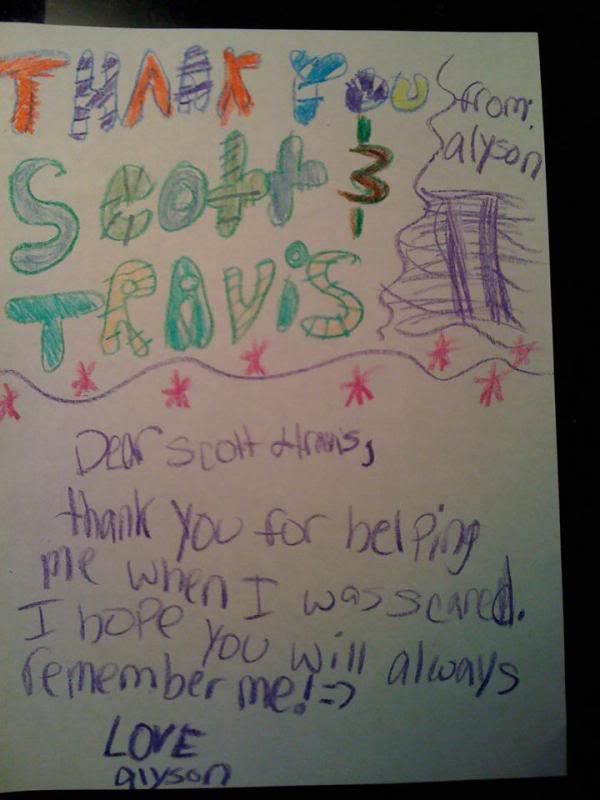 THANK YOU
from:
alyson
Scott &
TRAViS
Dear scott & travis,
thank you for helping
me when I was scared.
I hope you will always
remember me! =)
LOVE
alyson